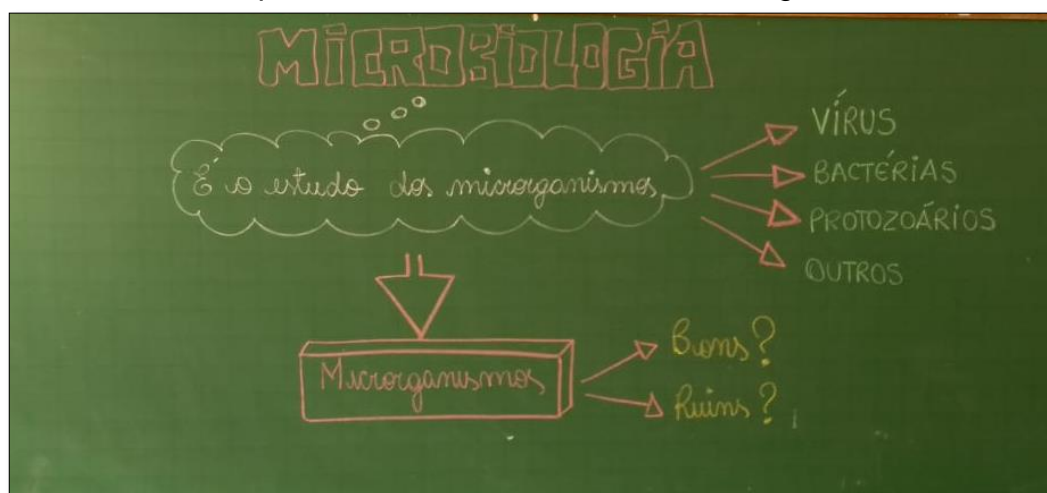 MICROBIOLOGIA
É o estudo dos microrganismos
VÍRUS
BACTÉRIAS
PROTOZOÁRIOS
OUTROS
Microrganismos
Bons?
Ruins?